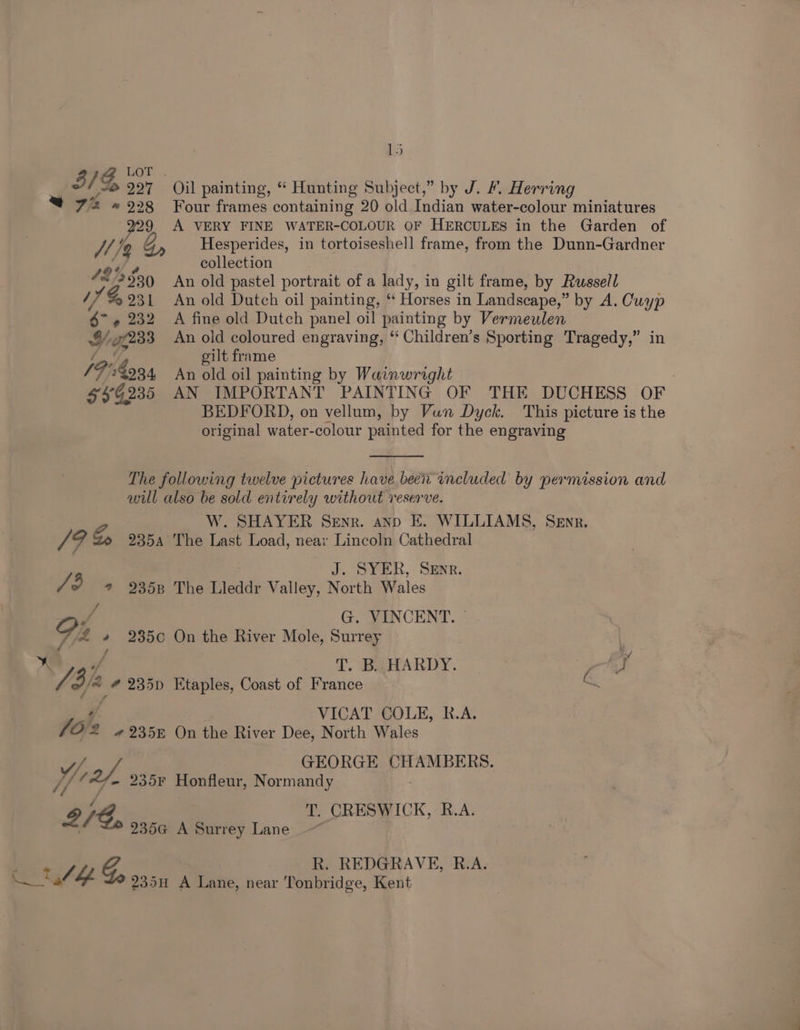 15
LOT
227 Oil painting, “ Hunting Subject,” by J. F. Herring
228 Four frames containing 20 old Indian water-colour miniatures
229 A VERY FINE WATER-COLOUR OF HERCULES in the Garden of
Hesperides, in tortoiseshell frame, from the Dunn-Gardner
collection
230 An old pastel portrait of a lady, in gilt frame, by Russell
231 An old Dutch oil painting, “ Horses in Landscape,” by A. Cuyp
232 A fine old Dutch panel oil painting by Vermeulen
233 An old coloured engraving, “ Children’s Sporting Tragedy,” in
gilt frame
234 An old oil painting by Wainwright
235 AN IMPORTANT PAINTING OF THE DUCHESS OF
BEDFORD, on vellum, by Van Dyck. This picture is the
original water-colour painted for the engraving
The following twelve pictures have been included by permission and
will also be sold entirely without reserve.
W. SHAYER SENR. AND E. WILLIAMS, SENR.
235A The Last Load, near Lincoln Cathedral
J. SYER, SENR.
235B The Lleddr Valley, North Wales
G. VINCENT.
235C On the River Mole, Surrey
T. B. HARDY.
235D Etaples, Coast of France
VICAT COLE, R.A.
235E On the River Dee, North Wales
GEORGE CHAMBERS.
235F Honfleur, Normandy
T. CRESWICK, R.A.
235G A Surrey Lane
R. REDGRAVE, R.A.
235H A Lane, near Tonbridge, Kent